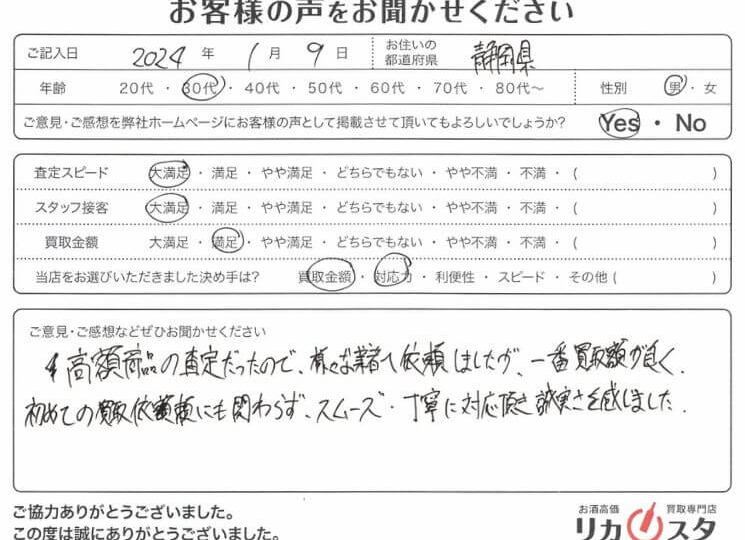 お客様の声をお聞かせください
ご記入日 2024 年 1 月 9 日 お住いの都道府県 静岡県
年齢 20代・30代・40代・50代・60代・70代・80代〜 性別 男・女
ご意見・ご感想を弊社ホームページにお客様の声として掲載させて頂いてもよろしいでしょうか? Yes・No
査定スピード 大満足・満足・やや満足・どちらでもない・やや不満・不満・( )
スタッフ接客 大満足・満足・やや満足・どちらでもない・やや不満・不満・( )
買取金額 大満足・満足・やや満足・どちらでもない・やや不満・不満・( )
当店をお選びいただきました決め手は? 買取金額・対応力・利便性・スピード・その他( )
ご意見・ご感想などぜひお聞かせください
高額商品の査定だったので、様々な業者へ依頼しましたが、一番買取額が良く、
初めての買取依頼にも関わらず、スムーズ・丁寧に対応頂き誠実さを感じました.
ご協力ありがとうございました。
この度は誠にありがとうございました。
お酒高価 買取専門店
リカスタ